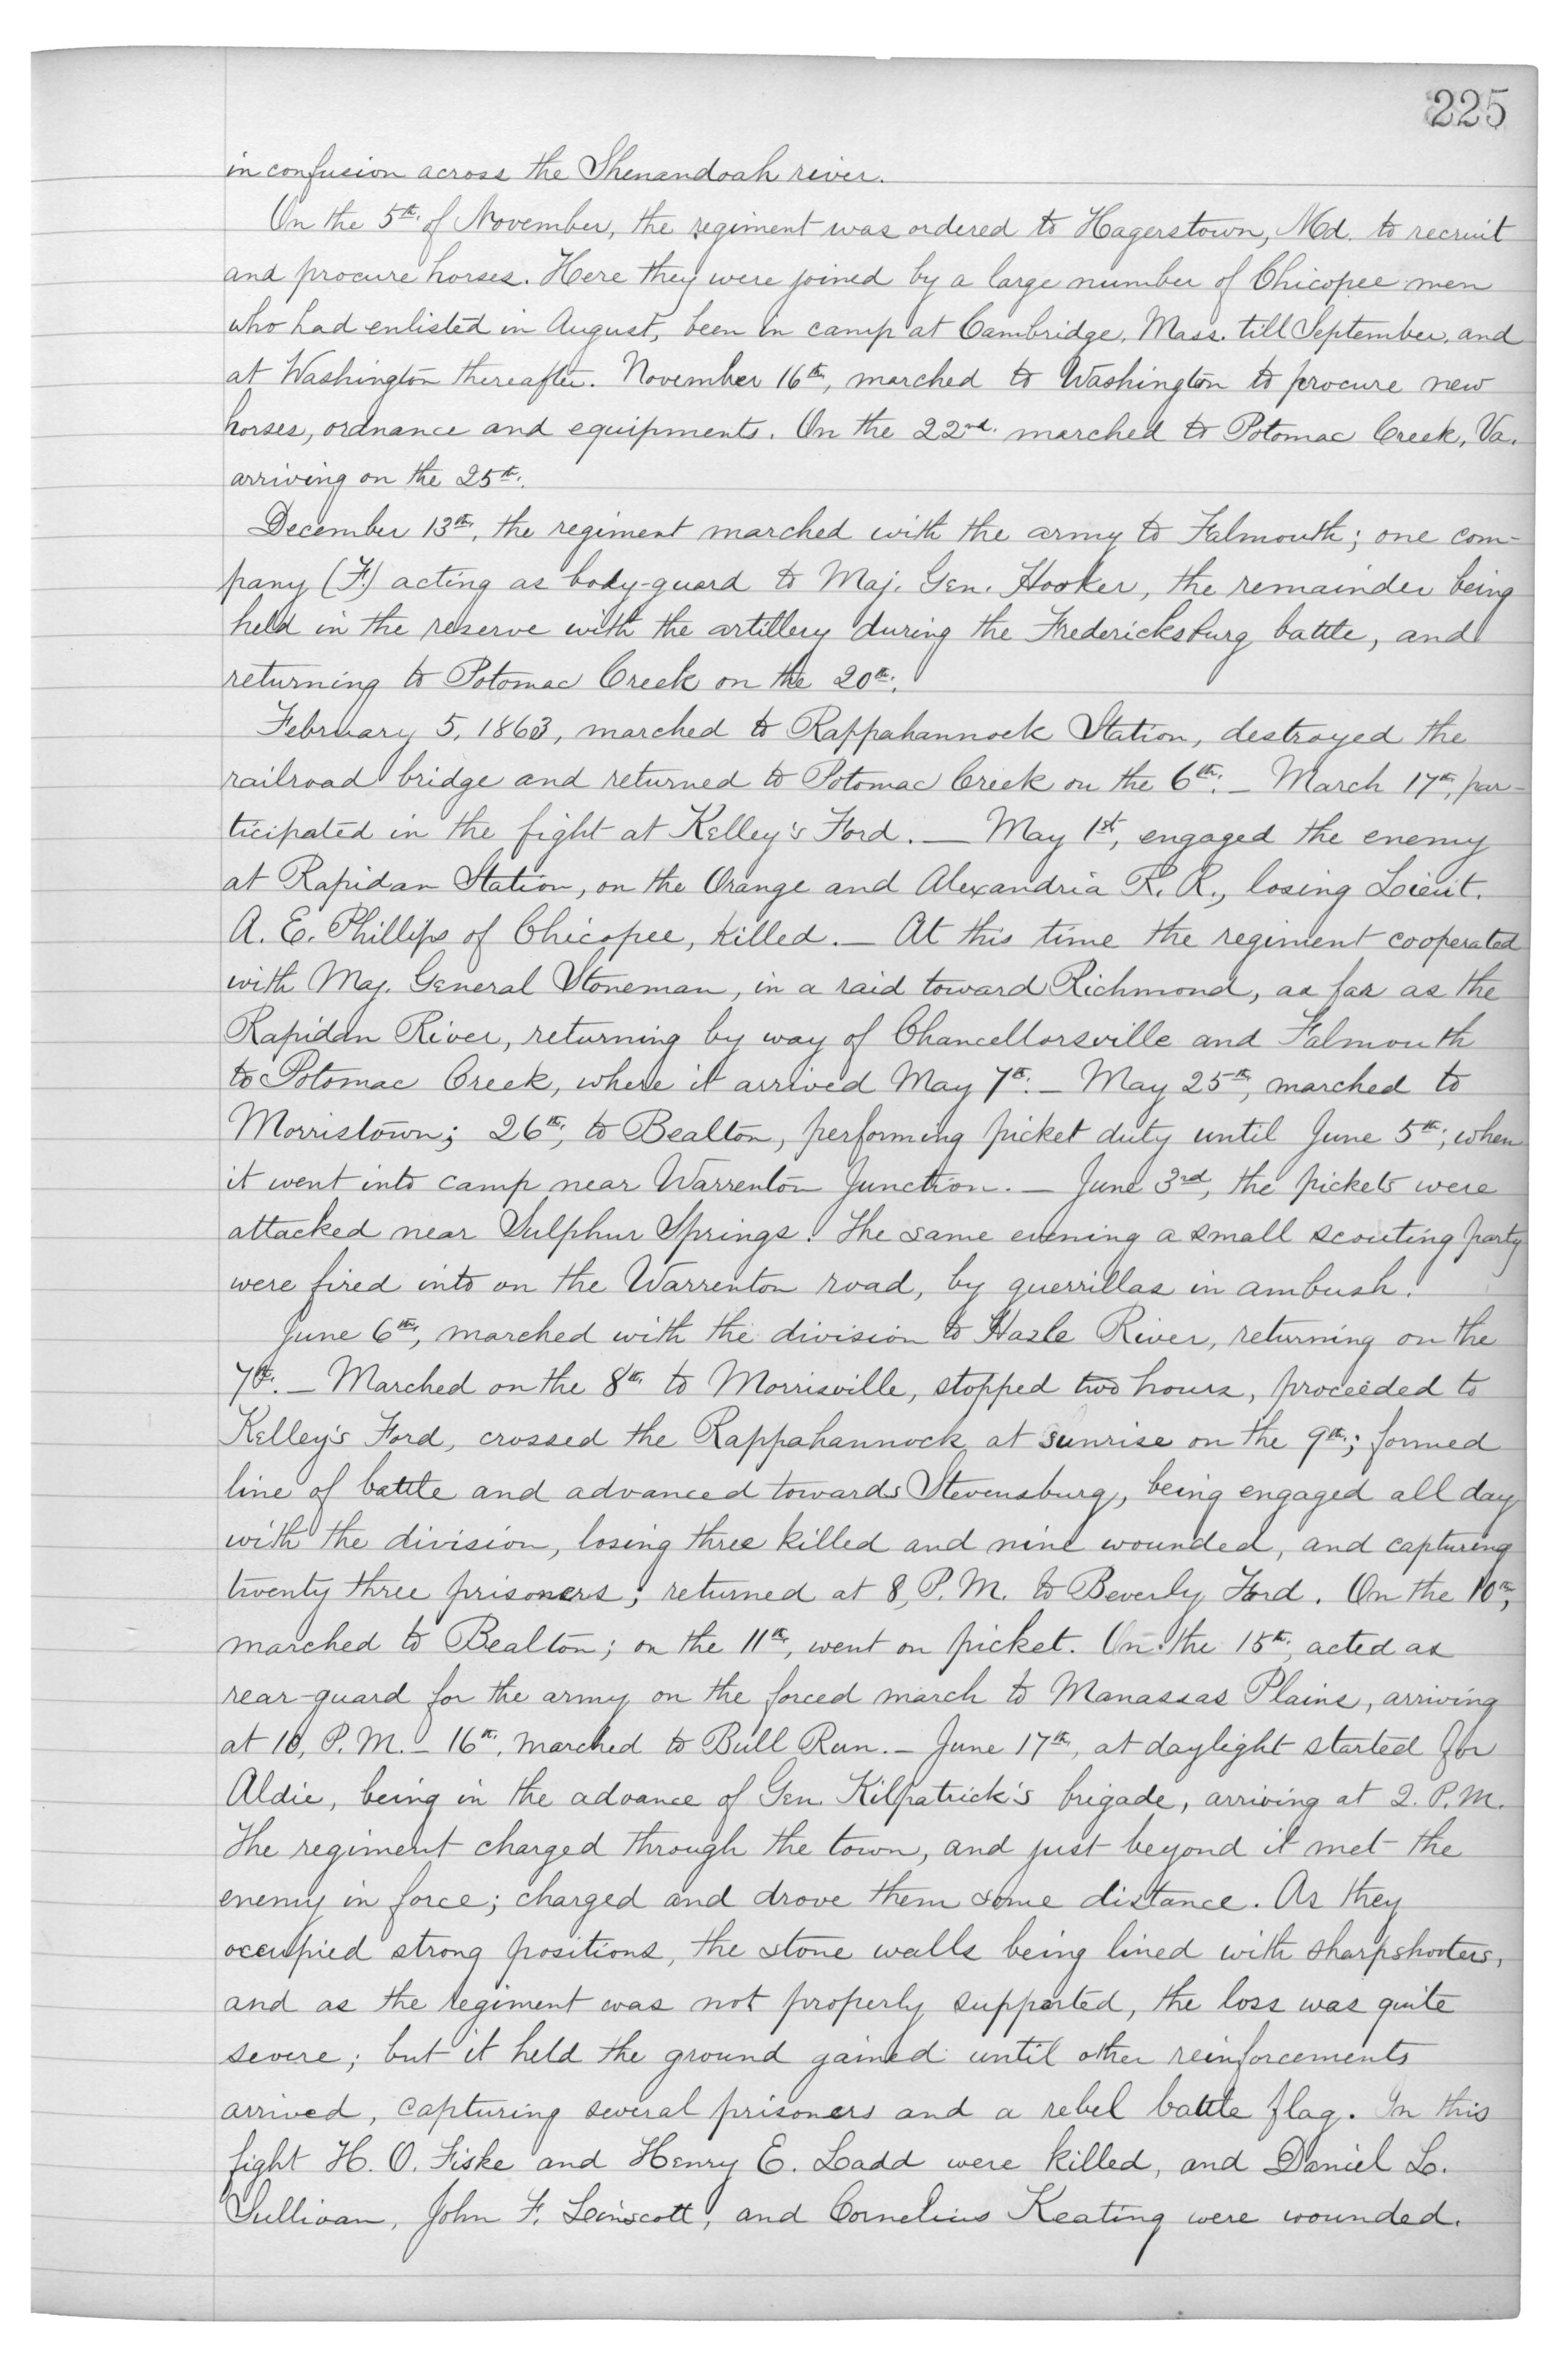 225
in confusion across the Shenandoah river.
On the 5th. of November, the regiment was ordered to Hagerstown, Md. to recruit
and procure horses. Here they were joined by a large number of Chicopee men
who had enlisted in August, been in camp at Cambridge, Mass. till September, and
at Washington thereafter. November 16th, marched to Washington to procure new
horses, ordnance and equipments. On the 22nd. marched to Potomac Creek, Va.
arriving on the 25th.
December 13th, the regiment marched with the army to Falmouth; one com-
pany (F.) acting as body-guard to Maj. Gen. Hooker, the remainder being
held in the reserve with the artillery during the Fredericksburg battle, and
returning to Potomac Creek on the 20th.
February 5, 1863, marched to Rappahannock Station, destroyed the
railroad bridge and returned to Potomac Creek on the 6th. – March 17th, par-
ticipated in the fight at Kelley's Ford. – May 1st, engaged the enemy
at Rapidan Station, on the Orange and Alexandria R. R., losing Lieut.
A. E. Phillips of Chicopee, killed. – At this time the regiment cooperated
with Maj. General Stoneman, in a raid toward Richmond, as far as the
Rapidan River, returning by way of Chancellorsville and Falmouth
to Potomac Creek, where it arrived May 7th. – May 25th, marched to
Morristown; 26th, to Bealton, performing picket duty until June 5th, when
it went into camp near Warrenton Junction. – June 3rd, the pickets were
attacked near Sulphur Springs. The same evening a small scouting party
were fired into on the Warrenton road, by guerrillas in ambush.
June 6th, marched with the division to Hazle River, returning on the
7th. – Marched on the 8th. to Morrisville, stopped two hours, proceeded to
Kelley's Ford, crossed the Rappahannock at sunrise on the 9th.; formed
line of battle and advanced towards Stevensburg, being engaged all day
with the division, losing three killed and nine wounded, and capturing
twenty three prisoners; returned at 8, P.M. to Beverly Ford. On the 10th,
marched to Bealton; on the 11th, went on picket. On the 15th, acted as
rear-guard for the army on the forced march to Manassas Plains, arriving
at 10, P.M. – 16th, marched to Bull Run. – June 17th, at daylight started for
Aldie, being in the advance of Gen. Kilpatrick's brigade, arriving at 2. P.M.
The regiment charged through the town, and just beyond it met the
enemy in force; charged and drove them some distance. As they
occupied strong positions, the stone walls being lined with sharpshooters,
and as the regiment was not properly supported, the loss was quite
severe; but it held the ground gained until other reinforcements
arrived, capturing several prisoners and a rebel battle flag. In this
fight H. O. Fiske and Henry E. Ladd were killed, and Daniel L.
Sullivan, John F. Leinscott, and Cornelius Keating were wounded.